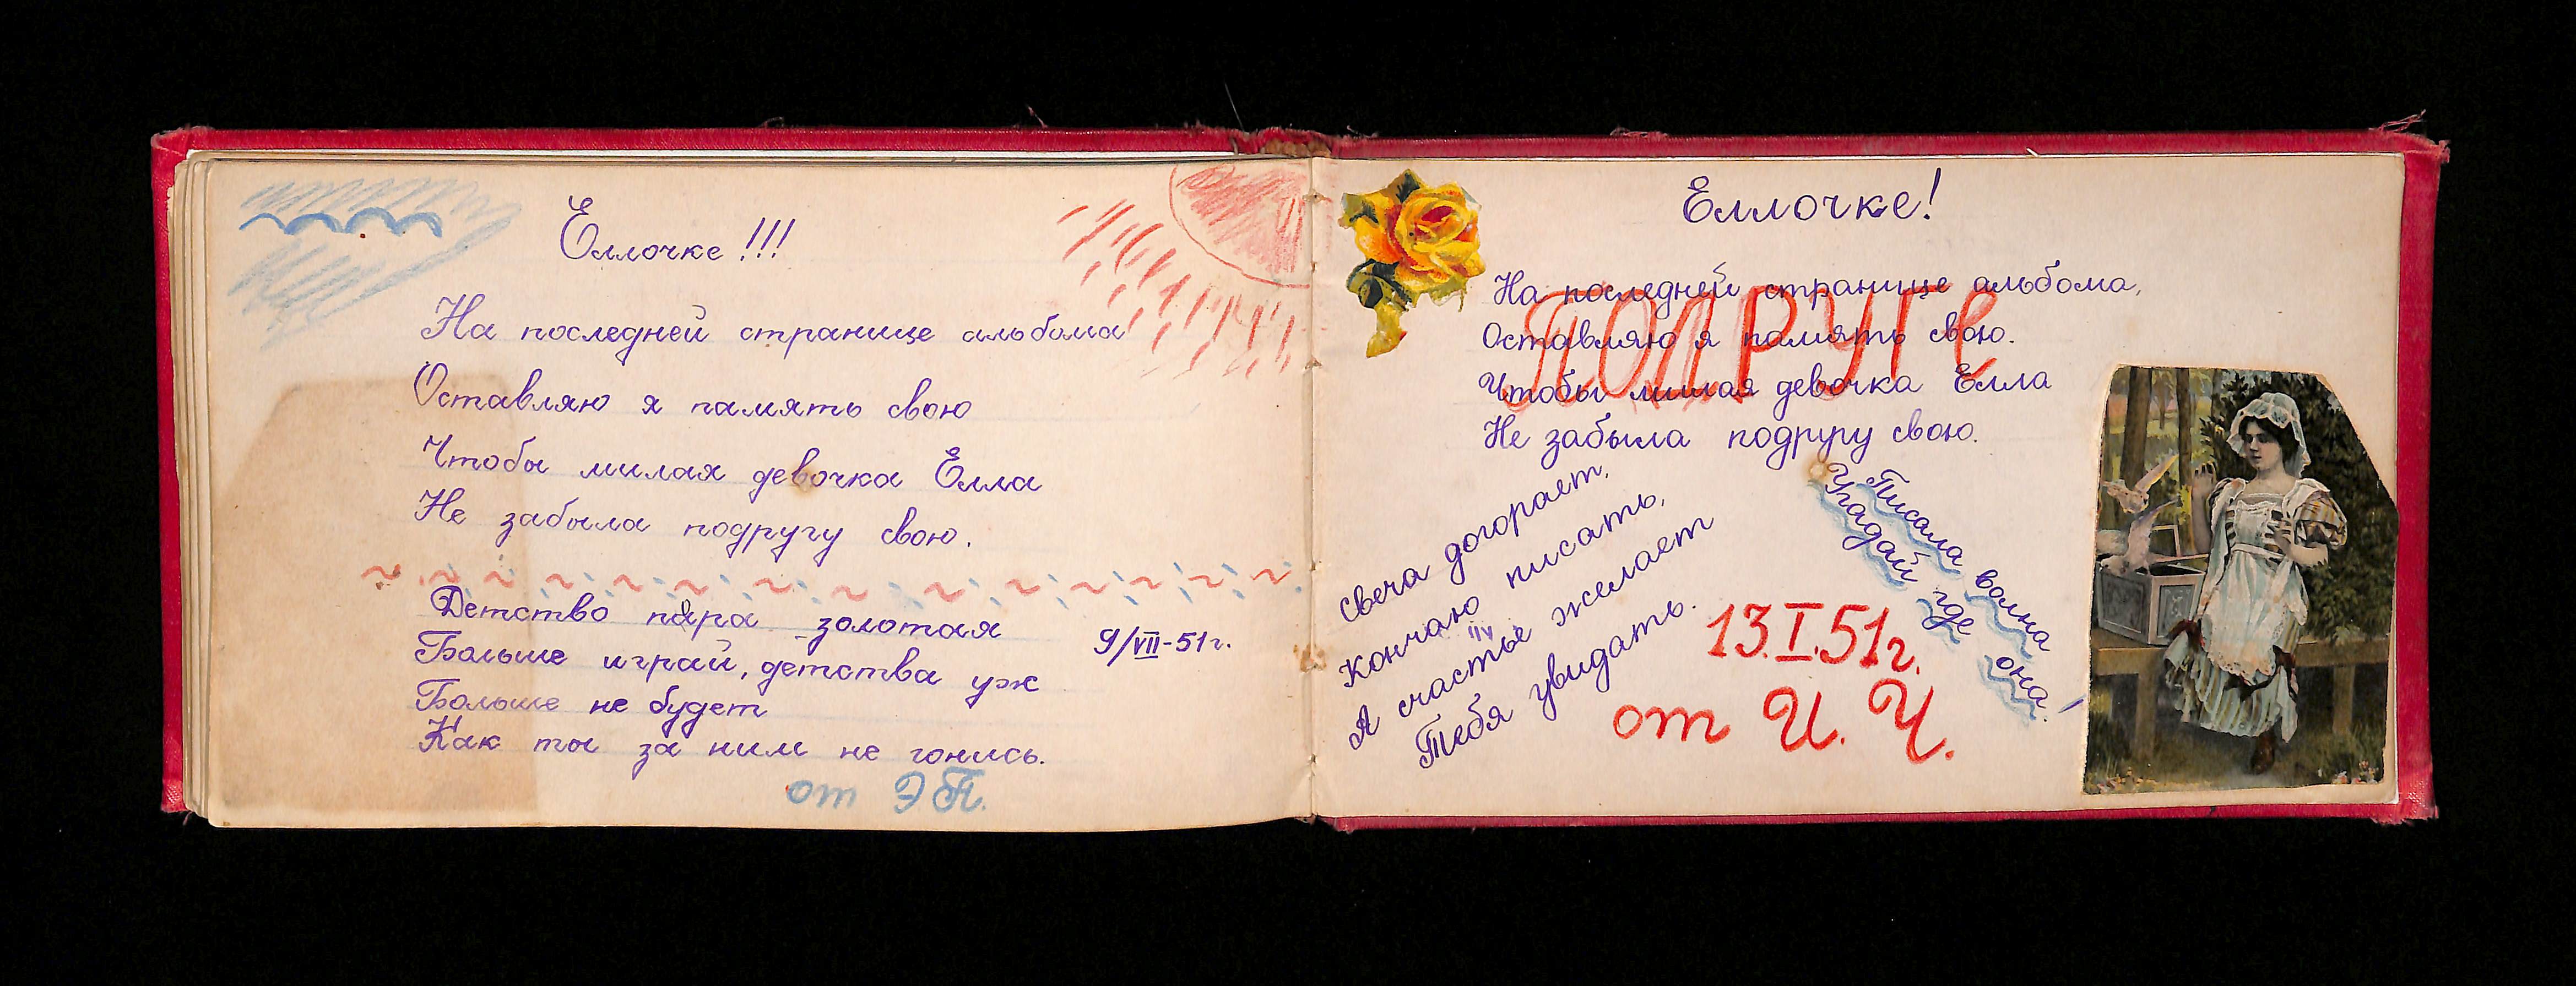 Еллочке!!!
На последней странице альбома
Оставляю я память свою
Чтобы милая девочка Елла
Не забыла подругу свою.
Детство пора золотая
Больше играй, детства уж
Больше не будет
Как ты за ним не гонись.
9/VII-51г.
от Э П.
Еллочке!
Подруге
На последней странице альбома,
Оставляю я память свою.
Чтобы милая девочка Елла
Не забыла подругу свою.
Свеча догорает,
Кончаю писать,
А счастье желает
Тебя увидать.
Писала волна
Угадай где она!
13.I.51г.
от И. Ч.